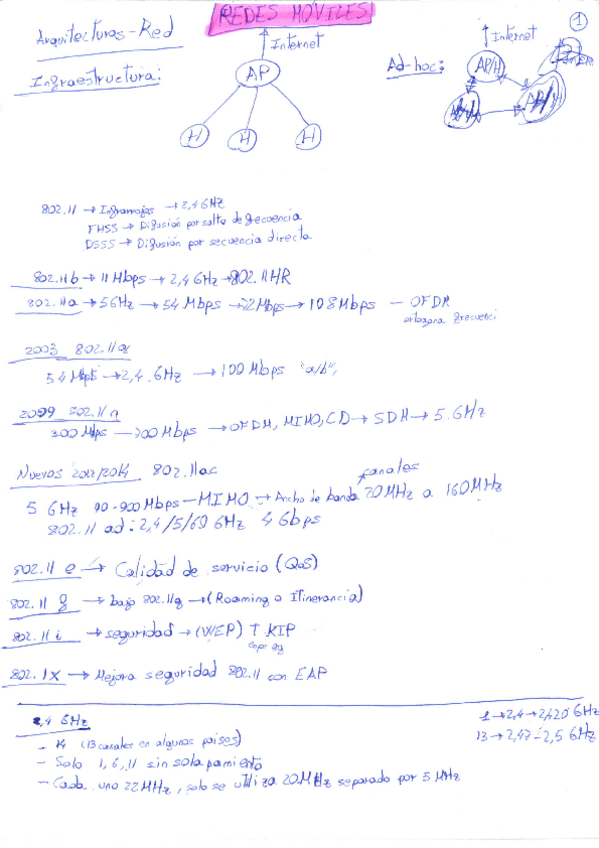 REDES MÓVILES
1
Arquitecturas-Red
Infraestructura:
Internet
AP
H
H
H
Ad-hoc:
Internet
AP/H
802.11 → Infrarrojos → 2,4 GHz
FHSS → Difusión por salto de frecuencia
DSSS → Difusión por secuencia directa
802.11b → 11 Mbps → 2,4 GHz → 802.11HR
802.11a → 5GHz → 54 Mbps → 72Mbps → 108Mbps — OFDM
ortogona frecuenci
2003 802.11g
54 Mbps → 2,4 GHz → 100 Mbps "a/b",
802.11n
300 Mbps → OFDM, MIMO, CD → SDM → 5.GHz
Nuevos 2012/2014 802.11ac
canales
5 GHz - 900 Mbps — MIMO → Ancho de banda 20MHz a 160MHz
802.11 ad: 2,4/5/60 GHz 4 Gbps
802.11 e → Calidad de servicio (QoS)
802.11 → bajo 802.11 → (Roaming o Itinerancia)
802.11 i → seguridad → (WEP) TKIP
802.1x → Mejora seguridad 802.11 con EAP
2,4 GHz
1 → 2,4 → 2,420 GHz
13 → 2,47 - 2,5 GHz
- 14 (13 canales en algunos países)
- Solo 1, 6, 11 sin solapamiento
- Cada uno 22MHz, solo se utiliza 20MHz separado por 5 MHz